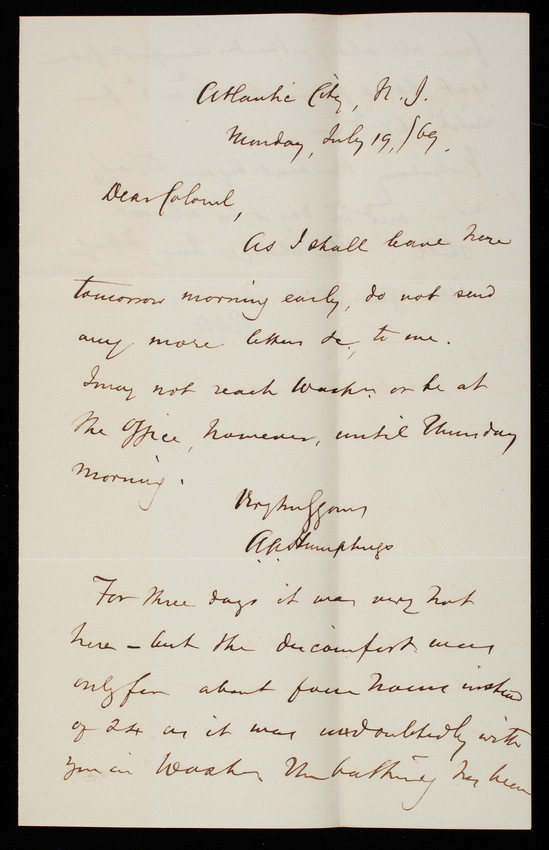 Atlantic City, N. J.
Monday, July 19, /69.
Dear Colonel,
As I shall leave here
tomorrow morning early, do not send
any more letters &c, to me.
I may not reach Washn. or be at
the Office, however, until Thursday
morning.
Very truly yours
A A Humphreys
For three days it was very hot
here – but the discomfort was
only for about four hours instead
of 24 as it was undoubtedly with
you in Washn. The bathing has been